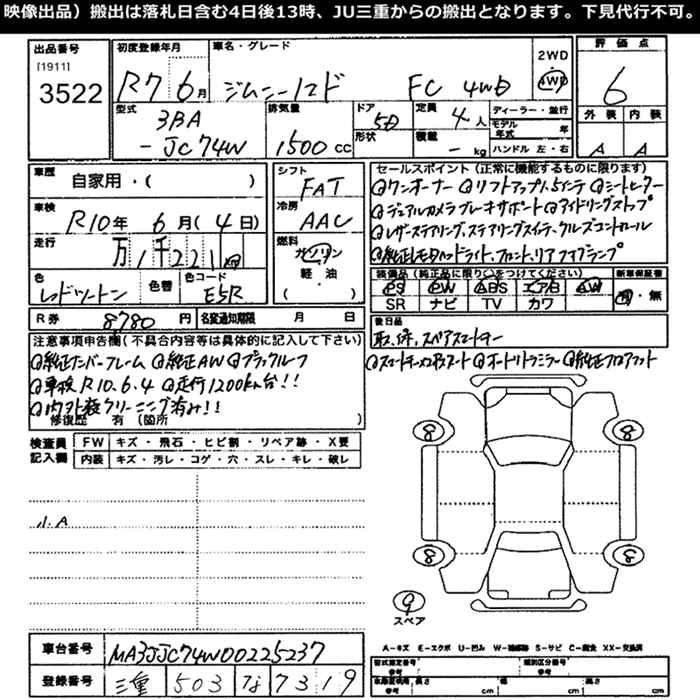 映像出品）搬出は落札日含む4日後13時、JU三重からの搬出となります。下見代行不可。
出品番号
[1911]
3522
初度登録年月
R7 6月
車名・グレード
ジムニーノマド FC 4WD
2WD
・
4WD
評価点
6
外装 内装
A A
型式
3BA
-JC74W
排気量
1500 cc
ドア
5D
形状
定員
4人
積載
- kg
ディーラー・並行
モデル年式 年
ハンドル 左・右
車歴
自家用・( )
車検
R10年 6月(4日)
走行
万1千221
色
レッドツートン
色替
色コード
E5R
シフト
FAT
冷房
AAC
燃料
ガソリン
軽・油
( )
セールスポイント(正常に機能するものに限ります)
◎ワンオーナー ◎リフトアップ1.5インチ ◎シートヒーター
◎デュアルカメラブレーキサポート ◎アイドリングストップ
◎レザーステアリング、ステアリングスイッチ、クルーズコントロール
◎純正LEDヘッドライト、フロント、リアフォグランプ
装備品(純正品に限り○をつけてください)
PS PW ABS エアB AW
SR ナビ TV カワ
新車保証書
有・無
R券 8780円
名変通知期限 月 日
後日品
取、保、スペアスマートキー
注意事項申告欄(不具合内容等は具体的に記入して下さい)
◎純正ナンバーフレーム ◎純正AW ◎ブラックルーフ
◎車検R10.6.4 ◎走行1200km台!!
◎内外装クリーニング済み!!
修復歴 有 (箇所 )
◎スマートキープッシュスタート ◎オートリトラミラー ◎純正フロアマット
検査員記入欄
FW キズ・飛石・ヒビ割・リペア跡・X要
内装 キズ・汚レ・コゲ・穴・スレ・キレ・破レ
小.A
8 8
8 8
9
スペア
車台番号
MA3JJC74W00225237
登録番号
三重 503 な 7319
A-キズ E-エクボ U-凹み W-補修跡 S-サビ C-腐食 XX-交換済
型式指定番号
類別区分番号
参考
参考
長さ cm
幅 cm
高さ cm